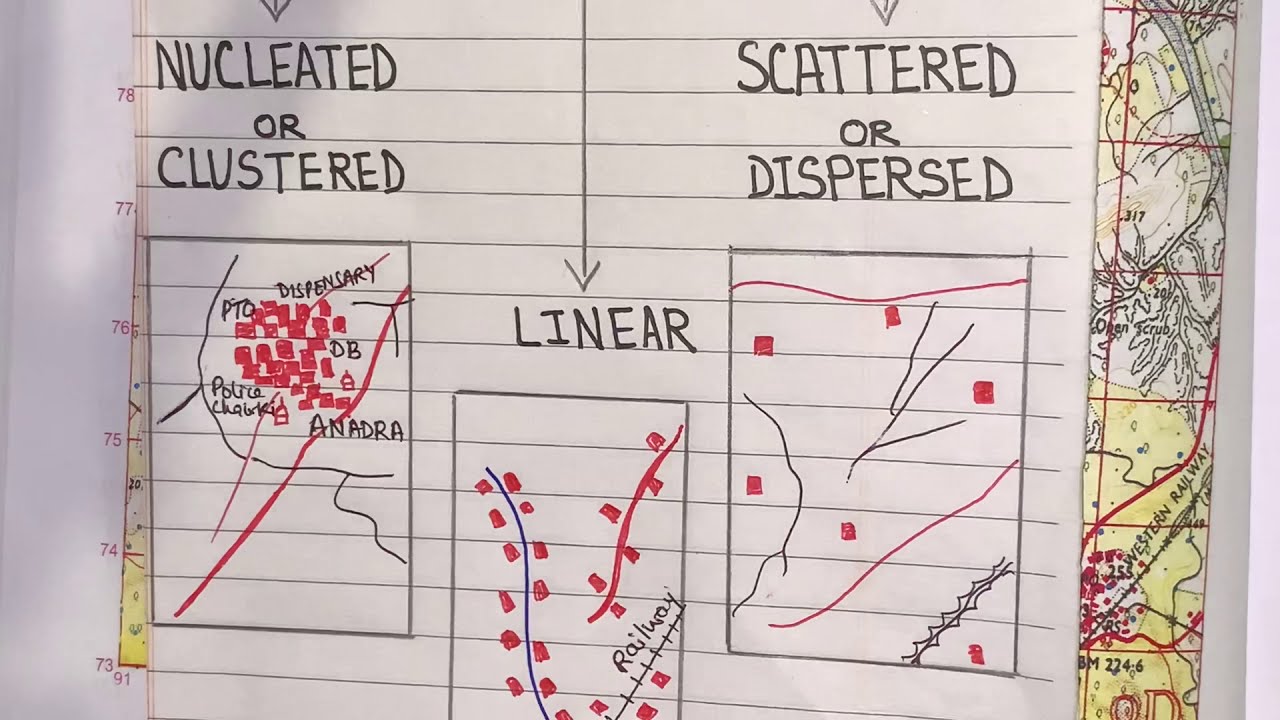 NUCLEATED
OR
CLUSTERED
SCATTERED
OR
DISPERSED
LINEAR
DISPENSARY
PTO
DB
Police
Chawki
ANADRA
Railway
78
77
76
75
74
73
91
20
.317
Open scrub
WESTERN RAILWAY
255
RS
BM 224.6